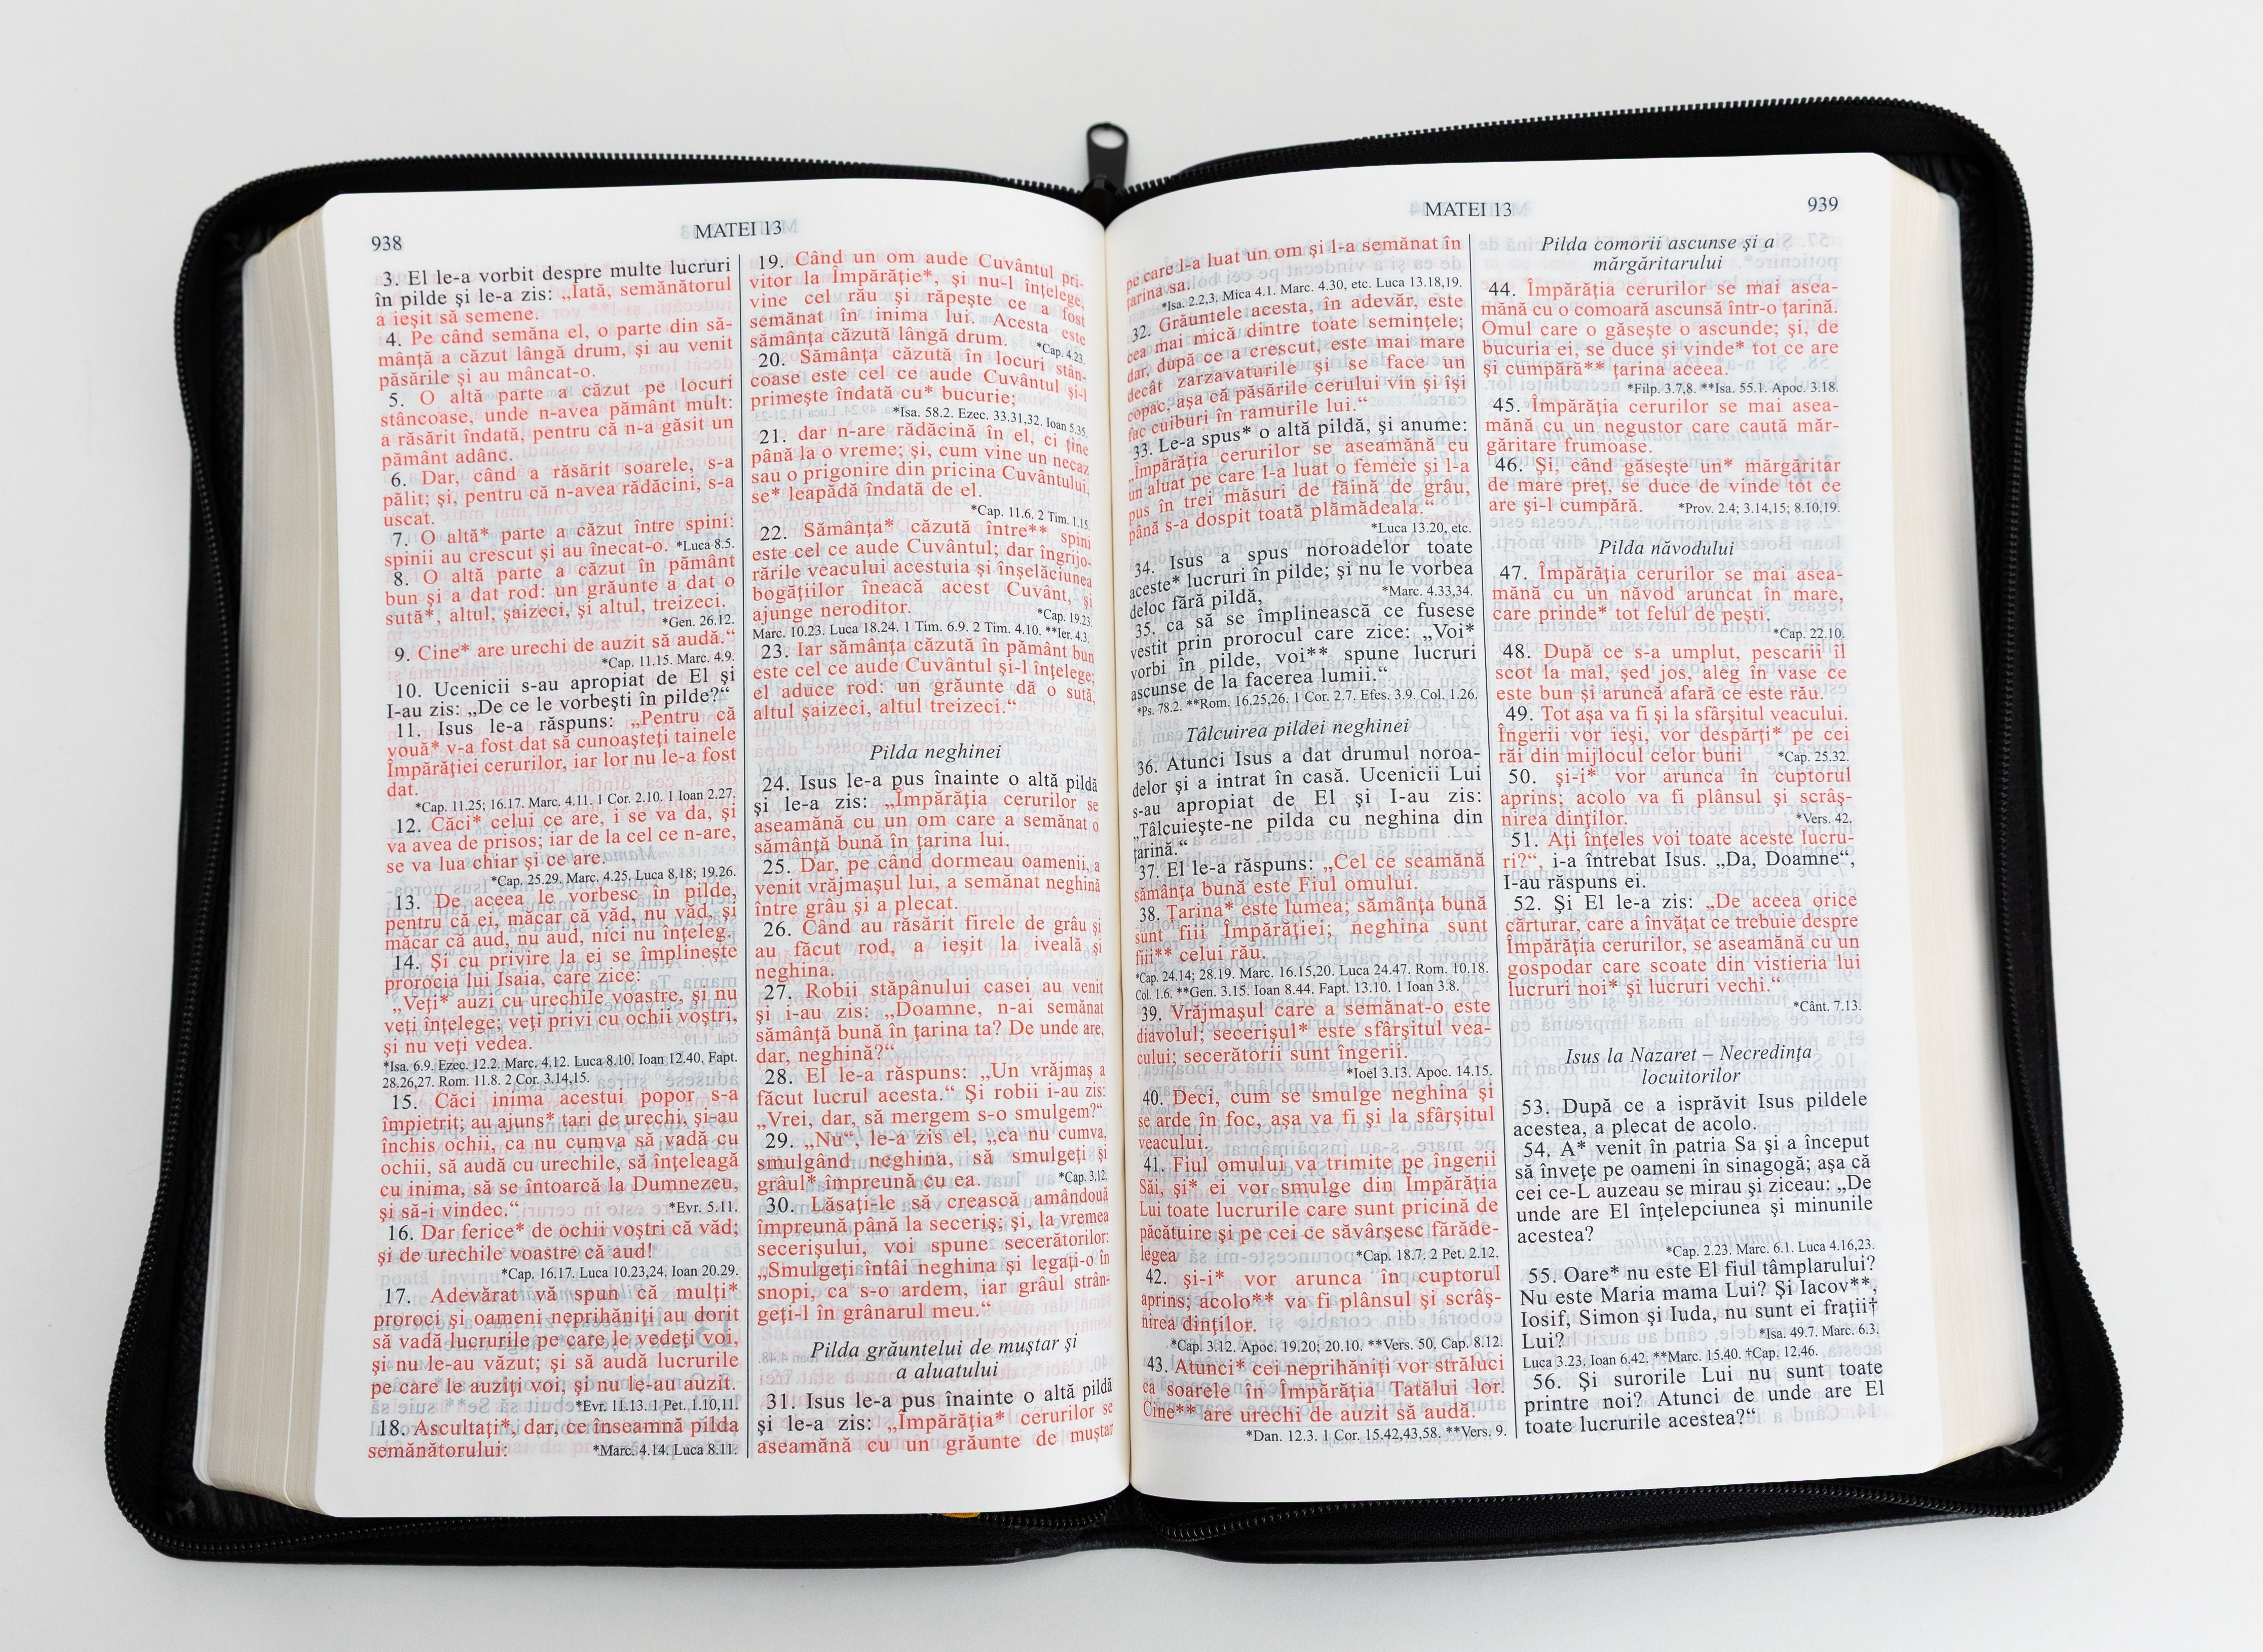 938
MATEI 13
3. El le-a vorbit despre multe lucruri
în pilde şi le-a zis: „Iată, semănătorul
a ieşit să semene.
4. Pe când semăna el, o parte din să-
mânţă a căzut lângă drum, şi au venit
păsările şi au mâncat-o.
5. O altă parte a căzut pe locuri
stâncoase, unde n-avea pământ mult:
a răsărit îndată, pentru că n-a găsit un
pământ adânc.
6. Dar, când a răsărit soarele, s-a
pălit; şi, pentru că n-avea rădăcini, s-a
uscat.
7. O altă* parte a căzut între spini:
spinii au crescut şi au înecat-o. *Luca 8.5.
8. O altă parte a căzut în pământ
bun şi a dat rod: un grăunte a dat o
sută*, altul, şaizeci, şi altul, treizeci.
*Gen. 26.12.
9. Cine* are urechi de auzit să audă.“
*Cap. 11.15. Marc. 4.9.
10. Ucenicii s-au apropiat de El şi
I-au zis: „De ce le vorbeşti în pilde?“
11. Isus le-a răspuns: „Pentru că
vouă* v-a fost dat să cunoaşteţi tainele
Împărăţiei cerurilor, iar lor nu le-a fost
dat.
*Cap. 11.25; 16.17. Marc. 4.11. 1 Cor. 2.10. 1 Ioan 2.27.
12. Căci* celui ce are, i se va da, şi
va avea de prisos; iar de la cel ce n-are,
se va lua chiar şi ce are.
*Cap. 25.29. Marc. 4.25. Luca 8.18; 19.26.
13. De aceea le vorbesc în pilde,
pentru că ei, măcar că văd, nu văd, şi
măcar că aud, nu aud, nici nu înţeleg.
14. Şi cu privire la ei se împlineşte
prorocia lui Isaia, care zice:
„Veţi* auzi cu urechile voastre, şi nu
veţi înţelege; veţi privi cu ochii voştri,
şi nu veţi vedea.
*Isa. 6.9. Ezec. 12.2. Marc. 4.12. Luca 8.10. Ioan 12.40. Fapt.
28.26,27. Rom. 11.8. 2 Cor. 3.14,15.
15. Căci inima acestui popor s-a
împietrit; au ajuns* tari de urechi, şi-au
închis ochii, ca nu cumva să vadă cu
ochii, să audă cu urechile, să înţeleagă
cu inima, să se întoarcă la Dumnezeu,
şi să-i vindec.“ *Evr. 5.11.
16. Dar ferice* de ochii voştri că văd;
şi de urechile voastre că aud!
*Cap. 16.17. Luca 10.23,24. Ioan 20.29.
17. Adevărat vă spun că mulţi*
proroci şi oameni neprihăniţi au dorit
să vadă lucrurile pe care le vedeţi voi,
şi nu le-au văzut; şi să audă lucrurile
pe care le auziţi voi, şi nu le-au auzit.
*Evr. 11.13. 1 Pet. 1.10,11.
18. Ascultaţi*, dar, ce înseamnă pilda
semănătorului: *Marc. 4.14. Luca 8.11.
19. Când un om aude Cuvântul pri-
vitor la Împărăţie*, şi nu-l înţelege,
vine cel rău şi răpeşte ce a fost
semănat în inima lui. Acesta este
sămânţa căzută lângă drum. *Cap. 4.23.
20. Sămânţa căzută în locuri stân-
coase este cel ce aude Cuvântul şi-l
primeşte îndată cu* bucurie;
*Isa. 58.2. Ezec. 33.31,32. Ioan 5.35.
21. dar n-are rădăcină în el, ci ţine
până la o vreme; şi, cum vine un necaz
sau o prigonire din pricina Cuvântului,
se* leapădă îndată de el.
*Cap. 11.6. 2 Tim. 1.15.
22. Sămânţa* căzută între** spini
este cel ce aude Cuvântul; dar îngrijo-
rările veacului acestuia şi înşelăciunea
bogăţiilor îneacă acest Cuvânt, şi
ajunge neroditor. *Cap. 19.23.
Marc. 10.23. Luca 18.24. 1 Tim. 6.9. 2 Tim. 4.10. **Ier. 4.3.
23. Iar sămânţa căzută în pământ bun
este cel ce aude Cuvântul şi-l înţelege;
el aduce rod: un grăunte dă o sută,
altul şaizeci, altul treizeci.“
Pilda neghinei
24. Isus le-a pus înainte o altă pildă
şi le-a zis: „Împărăţia cerurilor se
aseamănă cu un om care a semănat o
sămânţă bună în ţarina lui.
25. Dar, pe când dormeau oamenii, a
venit vrăjmaşul lui, a semănat neghină
între grâu şi a plecat.
26. Când au răsărit firele de grâu şi
au făcut rod, a ieşit la iveală şi
neghina.
27. Robii stăpânului casei au venit
şi i-au zis: „Doamne, n-ai semănat
sămânţă bună în ţarina ta? De unde are,
dar, neghină?“
28. El le-a răspuns: „Un vrăjmaş a
făcut lucrul acesta.“ Şi robii i-au zis:
„Vrei, dar, să mergem s-o smulgem?“
29. „Nu“, le-a zis el, „ca nu cumva,
smulgând neghina, să smulgeţi şi
grâul* împreună cu ea. *Cap. 3.12.
30. Lăsaţi-le să crească amândouă
împreună până la seceriş; şi, la vremea
secerişului, voi spune secerătorilor:
„Smulgeţi întâi neghina şi legaţi-o în
snopi, ca s-o ardem, iar grâul strân-
geţi-l în grânarul meu.“
Pilda grăuntelui de muştar şi
a aluatului
31. Isus le-a pus înainte o altă pildă
şi le-a zis: „Împărăţia* cerurilor se
aseamănă cu un grăunte de muştar
MATEI 13
939
pe care l-a luat un om şi l-a semănat în
ţarina sa.
*Isa. 2.2,3. Mica 4.1. Marc. 4.30, etc. Luca 13.18,19.
32. Grăuntele acesta, în adevăr, este
cea mai mică dintre toate seminţele;
dar, după ce a crescut, este mai mare
decât zarzavaturile şi se face un
copac, aşa că păsările cerului vin şi îşi
fac cuiburi în ramurile lui.“
33. Le-a spus* o altă pildă, şi anume:
„Împărăţia cerurilor se aseamănă cu
un aluat pe care l-a luat o femeie şi l-a
pus în trei măsuri de făină de grâu,
până s-a dospit toată plămădeala.“
*Luca 13.20, etc.
34. Isus a spus noroadelor toate
aceste* lucruri în pilde; şi nu le vorbea
deloc fără pildă, *Marc. 4.33,34.
35. ca să se împlinească ce fusese
vestit prin prorocul care zice: „Voi*
vorbi în pilde, voi** spune lucruri
ascunse de la facerea lumii.“
*Ps. 78.2. **Rom. 16.25,26. 1 Cor. 2.7. Efes. 3.9. Col. 1.26.
Tâlcuirea pildei neghinei
36. Atunci Isus a dat drumul noroa-
delor şi a intrat în casă. Ucenicii Lui
s-au apropiat de El şi I-au zis:
„Tâlcuieşte-ne pilda cu neghina din
ţarină.“
37. El le-a răspuns: „Cel ce seamănă
sămânţa bună este Fiul omului.
38. Ţarina* este lumea; sămânţa bună
sunt fiii Împărăţiei; neghina sunt
fiii** celui rău.
*Cap. 24.14; 28.19. Marc. 16.15,20. Luca 24.47. Rom. 10.18.
Col. 1.6. **Gen. 3.15. Ioan 8.44. Fapt. 13.10. 1 Ioan 3.8.
39. Vrăjmaşul care a semănat-o este
diavolul; secerişul* este sfârşitul vea-
cului; secerătorii sunt îngerii.
*Ioel 3.13. Apoc. 14.15.
40. Deci, cum se smulge neghina şi
se arde în foc, aşa va fi şi la sfârşitul
veacului.
41. Fiul omului va trimite pe îngerii
Săi, şi* ei vor smulge din Împărăţia
Lui toate lucrurile care sunt pricină de
păcătuire şi pe cei ce săvârşesc fărăde-
legea *Cap. 18.7. 2 Pet. 2.12.
42. şi-i* vor arunca în cuptorul
aprins; acolo** va fi plânsul şi scrâş-
nirea dinţilor.
*Cap. 3.12. Apoc. 19.20; 20.10. **Vers. 50. Cap. 8.12.
43. Atunci* cei neprihăniţi vor străluci
ca soarele în Împărăţia Tatălui lor.
Cine** are urechi de auzit să audă.
*Dan. 12.3. 1 Cor. 15.42,43,58. **Vers. 9.
Pilda comorii ascunse şi a
mărgăritarului
44. Împărăţia cerurilor se mai asea-
mănă cu o comoară ascunsă într-o ţarină.
Omul care o găseşte o ascunde; şi, de
bucuria ei, se duce şi vinde* tot ce are
şi cumpără** ţarina aceea.
*Filp. 3.7,8. **Isa. 55.1. Apoc. 3.18.
45. Împărăţia cerurilor se mai asea-
mănă cu un negustor care caută măr-
găritare frumoase.
46. Şi, când găseşte un* mărgăritar
de mare preţ, se duce de vinde tot ce
are şi-l cumpără. *Prov. 2.4; 3.14,15; 8.10,19.
Pilda năvodului
47. Împărăţia cerurilor se mai asea-
mănă cu un năvod aruncat în mare,
care prinde* tot felul de peşti.
*Cap. 22.10.
48. După ce s-a umplut, pescarii îl
scot la mal, şed jos, aleg în vase ce
este bun şi aruncă afară ce este rău.
49. Tot aşa va fi şi la sfârşitul veacului.
Îngerii vor ieşi, vor despărţi* pe cei
răi din mijlocul celor buni *Cap. 25.32.
50. şi-i* vor arunca în cuptorul
aprins; acolo va fi plânsul şi scrâş-
nirea dinţilor. *Vers. 42.
51. Aţi înţeles voi toate aceste lucru-
ri?“, i-a întrebat Isus. „Da, Doamne“,
I-au răspuns ei.
52. Şi El le-a zis: „De aceea orice
cărturar, care a învăţat ce trebuie despre
Împărăţia cerurilor, se aseamănă cu un
gospodar care scoate din vistieria lui
lucruri noi* şi lucruri vechi.“
*Cânt. 7.13.
Isus la Nazaret – Necredinţa
locuitorilor
53. După ce a isprăvit Isus pildele
acestea, a plecat de acolo.
54. A* venit în patria Sa şi a început
să înveţe pe oameni în sinagogă; aşa că
cei ce-L auzeau se mirau şi ziceau: „De
unde are El înţelepciunea şi minunile
acestea?
*Cap. 2.23. Marc. 6.1. Luca 4.16,23.
55. Oare* nu este El fiul tâmplarului?
Nu este Maria mama Lui? Şi Iacov**,
Iosif, Simon şi Iuda, nu sunt ei fraţii†
Lui? *Isa. 49.7. Marc. 6.3.
Luca 3.23. Ioan 6.42. **Marc. 15.40. †Cap. 12.46.
56. Şi surorile Lui nu sunt toate
printre noi? Atunci de unde are El
toate lucrurile acestea?“